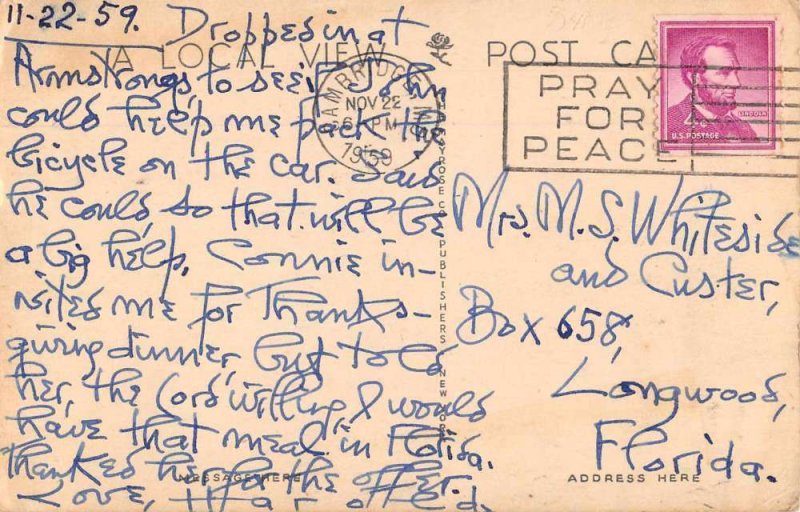 11-22-59. Dropped in at
Armstrongs, to see if John
could help me pack the
bicycle on the car. Said
he could, so that will be
a big help. Connie in-
vited me for Thanks-
giving dinner, but told
her, the Lord willing I would
have that meal in Florida.
Thanked her for the offer.
Love,
A LOCAL VIEW
POST CA
CAMBRIDGE
NOV 22
PM
1959
PRAY
FOR
PEACE
4¢
LINCOLN
U.S. POSTAGE
Mrs. M. S. Whiteside
and Custer,
Box 658,
Longwood,
Florida.
MESSAGE HERE
ADDRESS HERE
PUBLISHERS
NEW YORK